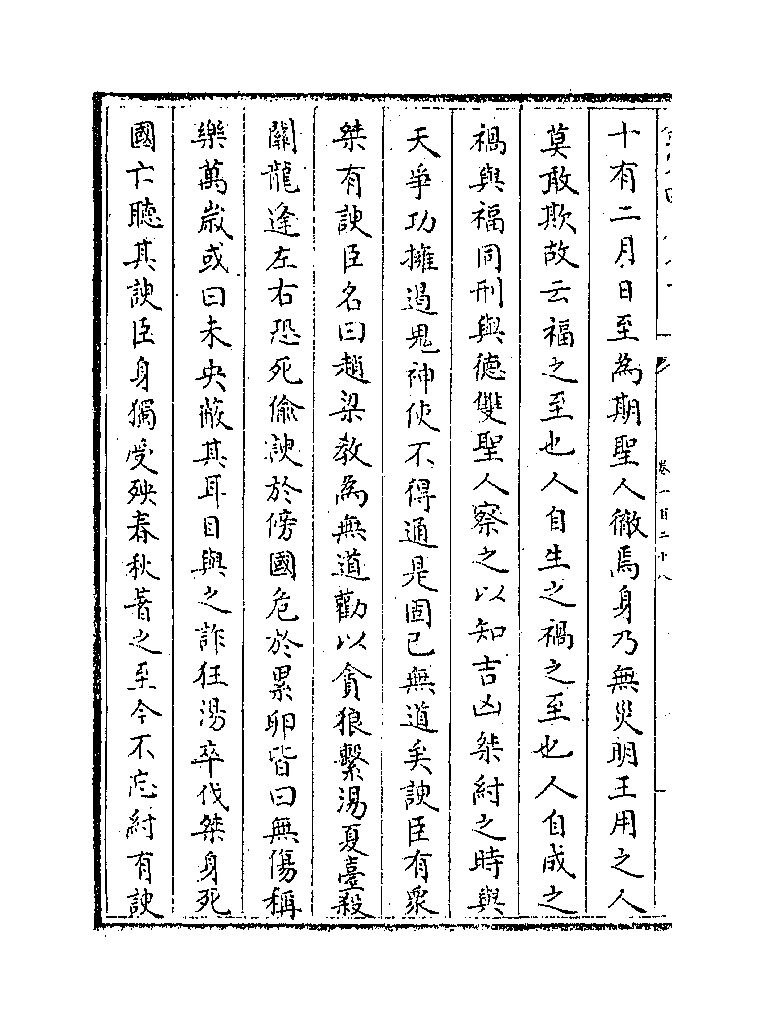 十有二月日至為期聖人徹焉身乃無災明王用之人
莫敢欺故云福之至也人自生之禍之至也人自成之
禍與福同刑與德雙聖人察之以知吉凶桀紂之時與
天爭功擁遏鬼神使不得通是固已無道矣諛臣有衆
桀有諛臣名曰趙梁教為無道勸以貪狼繫湯夏臺殺
關龍逢左右恐死偷諛於傍國危於累卵皆曰無傷稱
樂萬嵗或曰未央蔽其耳目與之詐狂湯卒伐桀身死
國亡聽其諛臣身獨受殃春秋著之至今不忘紂有諛
卷一百二十八